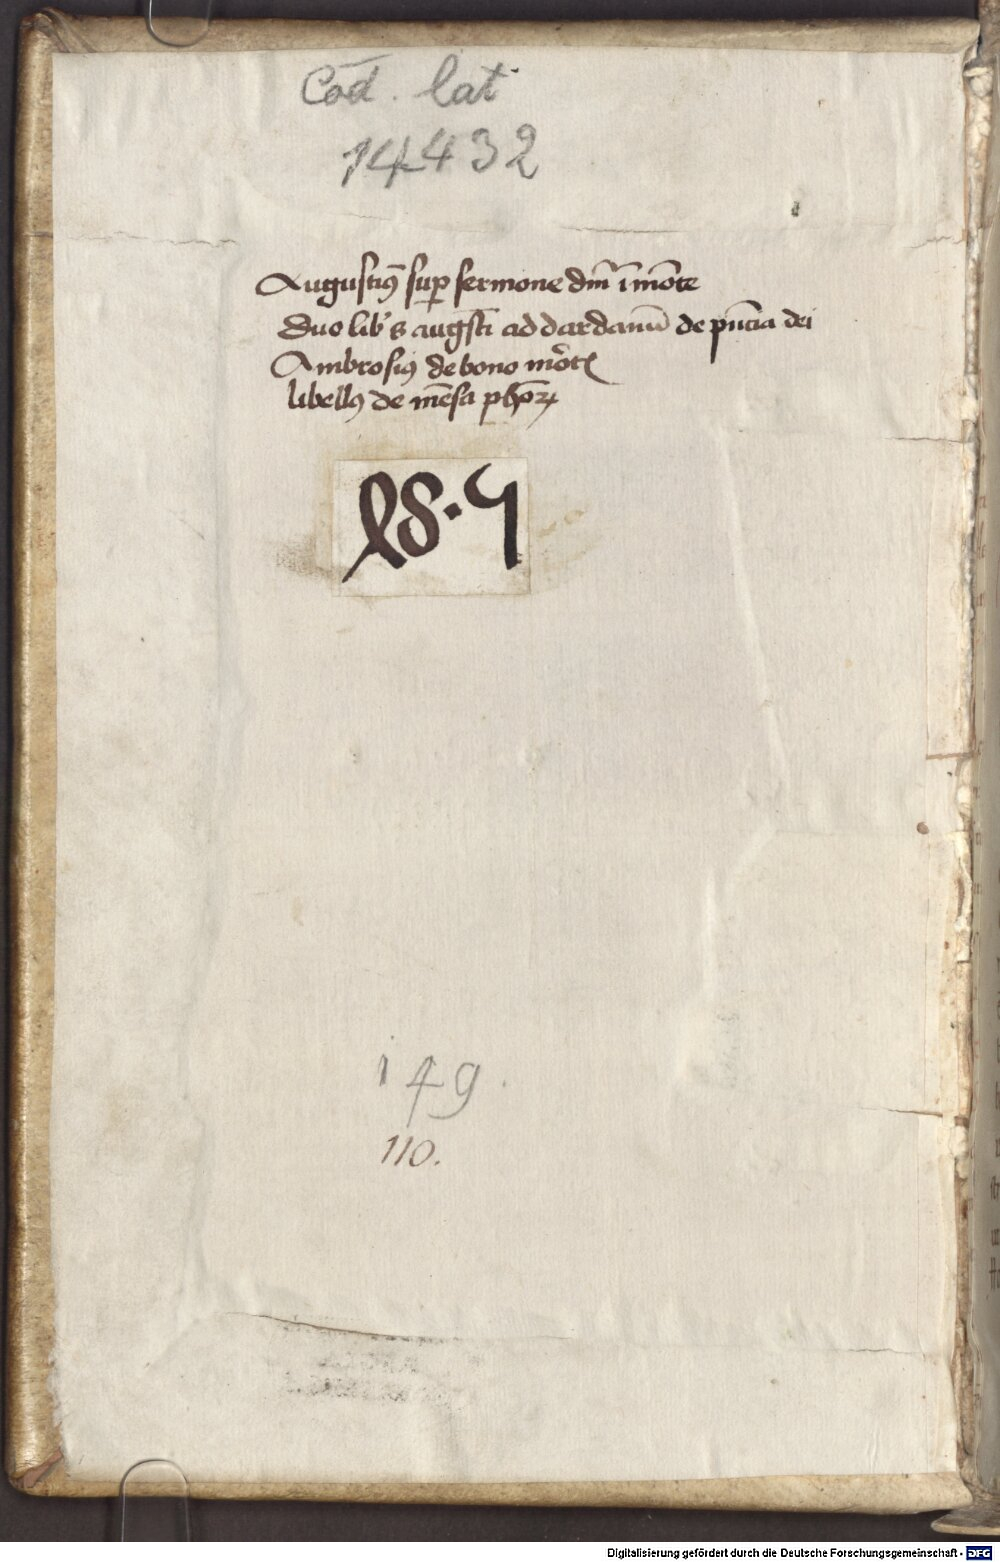 Cod. lat
14432
Augustiꝰ suꝑ sermone dm̄ ī mōte
Duo lib's augsti ad dardanū de pn̄cia dei
Ambrosiꝰ de bono mort
libellꝰ de mēsa phōꝝ
149.
110.
Digitalisierung gefördert durch die Deutsche Forschungsgemeinschaft - DFG